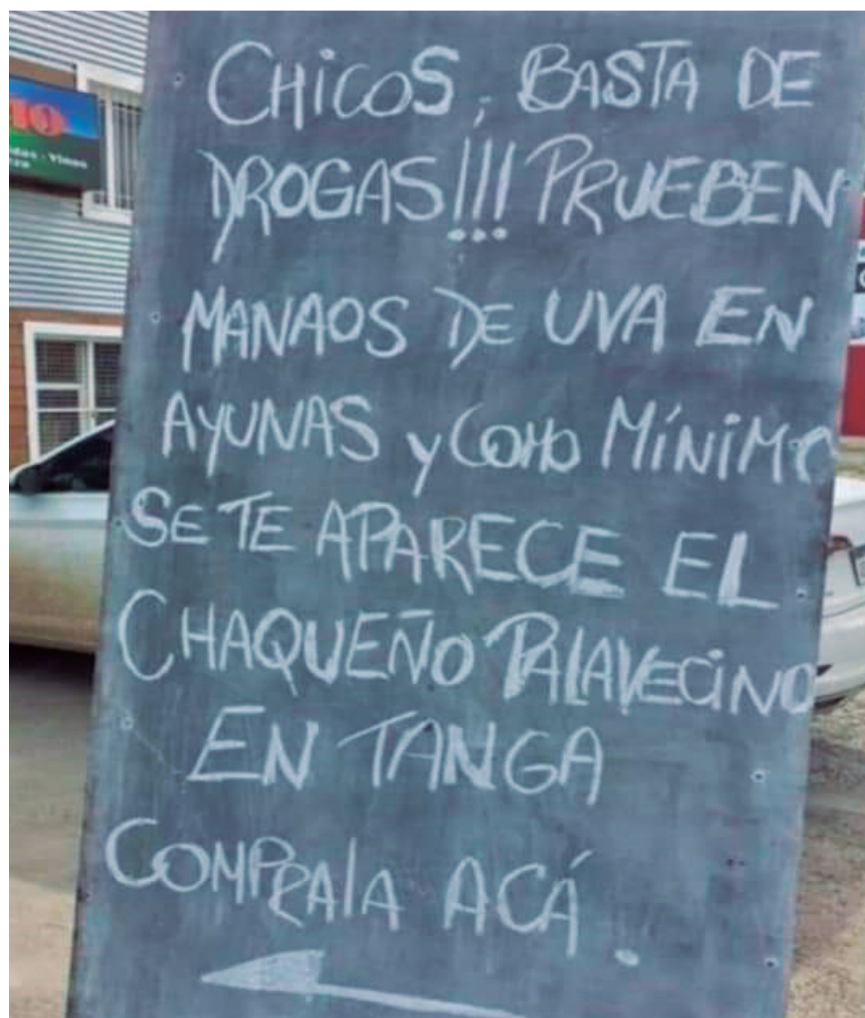 CHiCOS, BASTA DE
DROGAS!!! PRUEBEN
MANAOS DE UVA EN
AYUNAS y COMO MíNiMO
SE TE APARECE EL
CHAQUEÑO PALAVECiNO
EN TANGA
COMPRAlA ACÁ.
Vinos